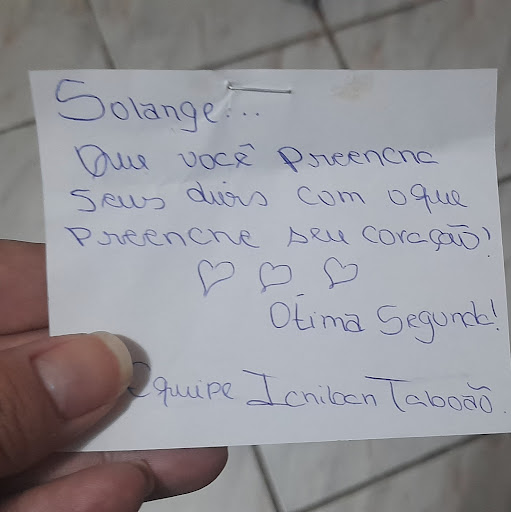 Solange...
Que você preencha
seus dias com o que
preenche seu coração!
Ótima Segunda!
Equipe Ichiban Taboão.